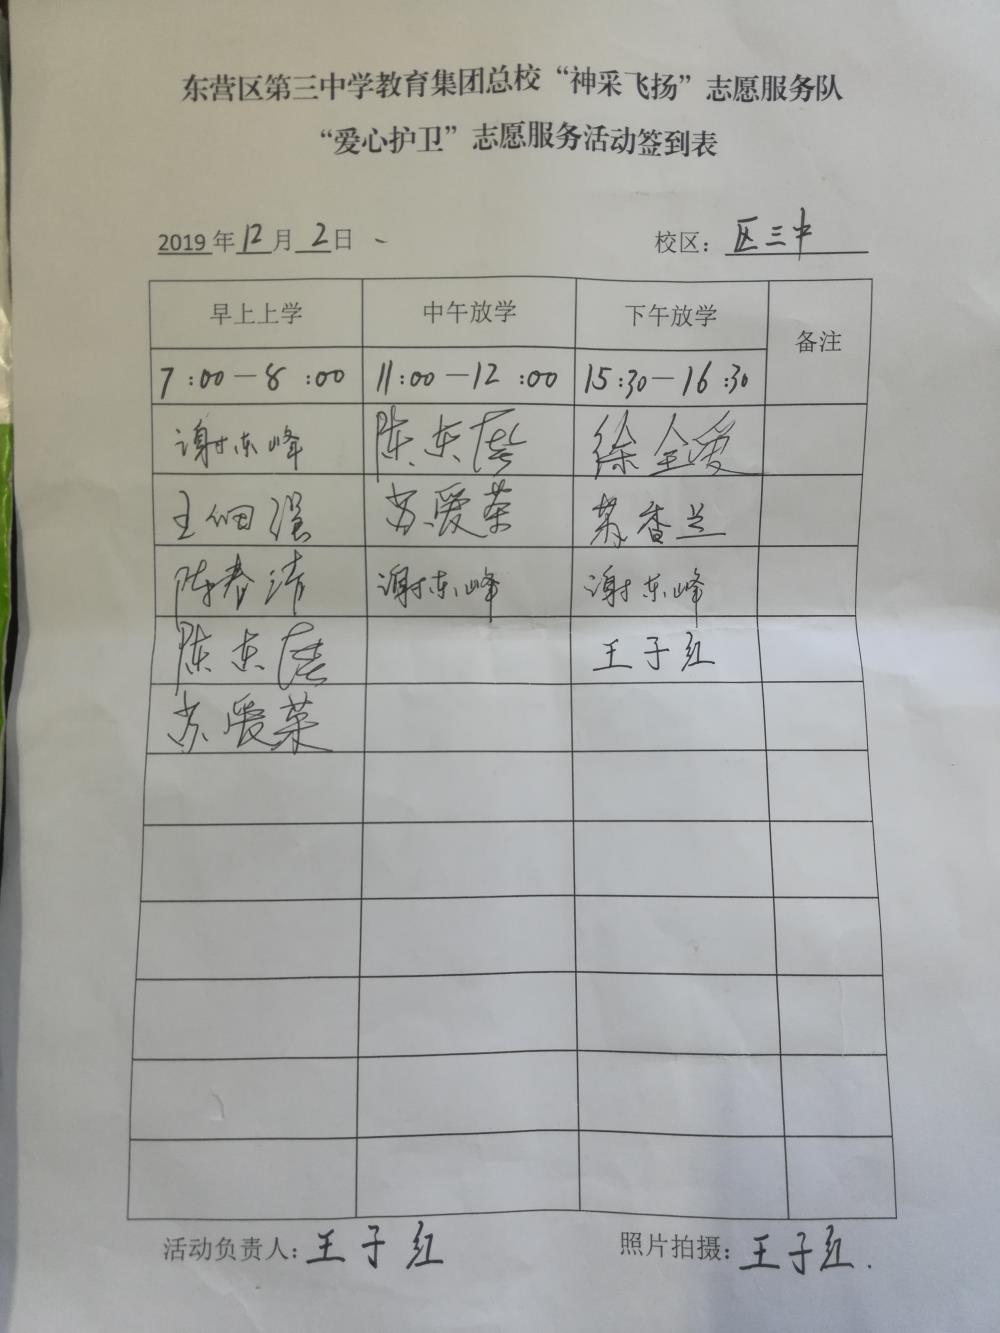 东营区第三中学教育集团总校“神采飞扬”志愿服务队
“爱心护卫”志愿服务活动签到表
2019年12月2日 校区：区三中
早上上学 中午放学 下午放学 备注
7:00—8:00 11:00—12:00 15:30—16:30
谢东峰 陈东 徐全爱
王 强 苏爱荣 香兰
陈春涛 谢东峰 谢东峰
陈东 王子红
苏爱菜
活动负责人：王子红 照片拍摄：王子红.